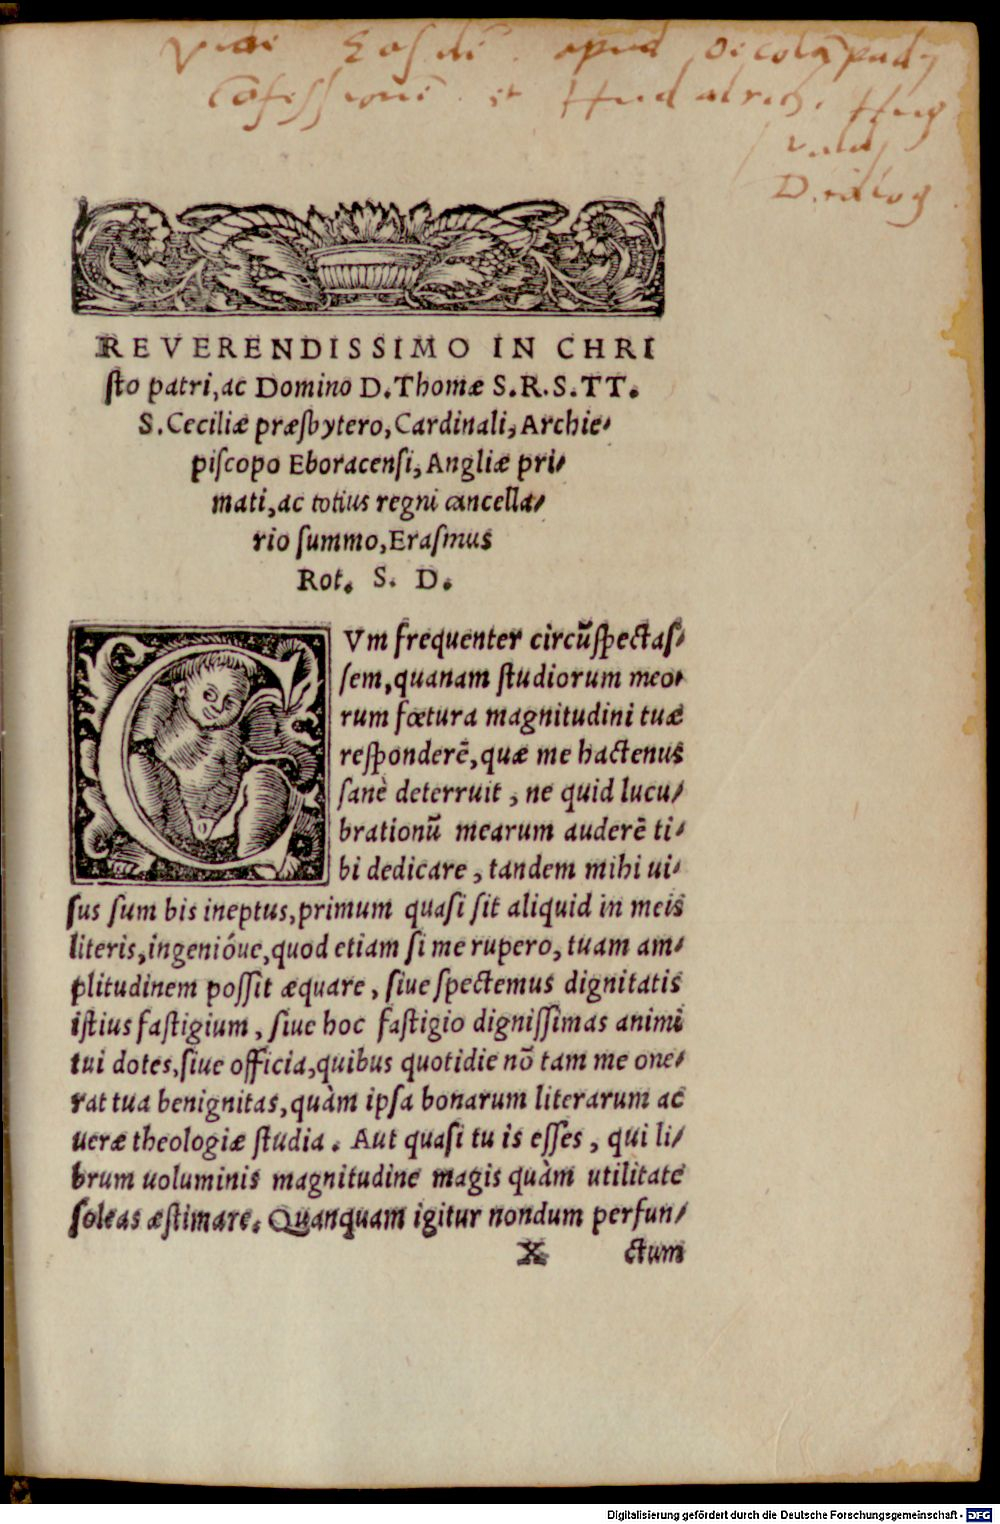 Vide Eosdē apud Oecolāpadꝫ
Cōfessionē et Hudalrichi Hug
uald
Dialog
REVERENDISSIMO IN CHRI
ſto patri, ac Domino D. Thomæ S.R.S.TT.
S. Ceciliæ præſbytero, Cardinali, Archie-
piſcopo Eboracenſi, Angliæ pri-
mati, ac totius regni cancella-
rio ſummo, Eraſmus
Rot. S. D.
CVm frequenter circūſpectaſ-
ſem, quanam ſtudiorum meo-
rum fœtura magnitudini tuæ
reſponderē, quæ me hactenus
ſanè deterruit, ne quid lucu-
brationū mearum auderē ti-
bi dedicare, tandem mihi ui-
ſus ſum bis ineptus, primum quaſi ſit aliquid in meis
literis, ingenióue, quod etiam ſi me rupero, tuam am-
plitudinem poſſit æquare, ſiue ſpectemus dignitatis
iſtius faſtigium, ſiue hoc faſtigio digniſſimas animi
tui dotes, ſiue officia, quibus quotidie nō tam me one-
rat tua benignitas, quàm ipſa bonarum literarum ac
ueræ theologiæ ſtudia. Aut quaſi tu is eſſes, qui li-
brum uoluminis magnitudine magis quàm utilitate
ſoleas æſtimare. Quanquam igitur nondum perfun-
X ctum
Digitalisierung gefördert durch die Deutsche Forschungsgemeinschaft - DFG